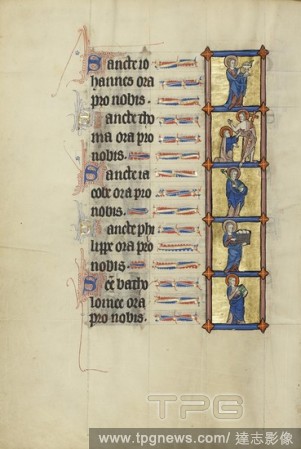 Sancte io
hannes ora
pro nobis.
Sancte tho
ma ora pro
nobis.
Sancte ia
cobe ora pro
nobis.
Sancte phi
lippe ora pro
nobis.
Sce bartho
lomee ora
pro nobis.
TPG
www.tpgnews.com/ 達志影像